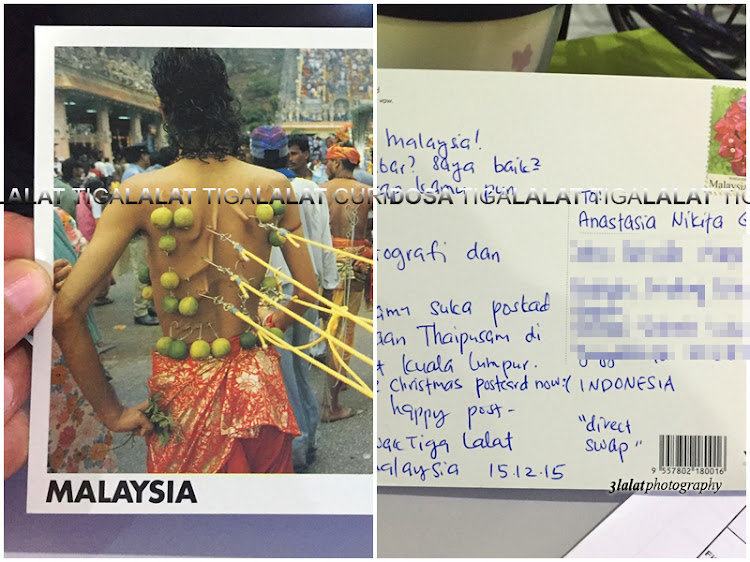 MALAYSIA
LALAT TIGALALAT TIGALALAT TIGALALAT CURIDOSA TIGALALAT TIGALALAT TIGALALAT
malaysia!
bar? saya baik2
kamu pun
tografi dan
amu suka postcad
aan Thaipusam di
t kuala lumpur.
christmas postcard now :(
happy post-
Tiga Lalat
malaysia 15.12.15
Malaysia
To:
Anastasia Nikita G
INDONESIA
"direct
swap"
9 557802 180016
3lalatphotography